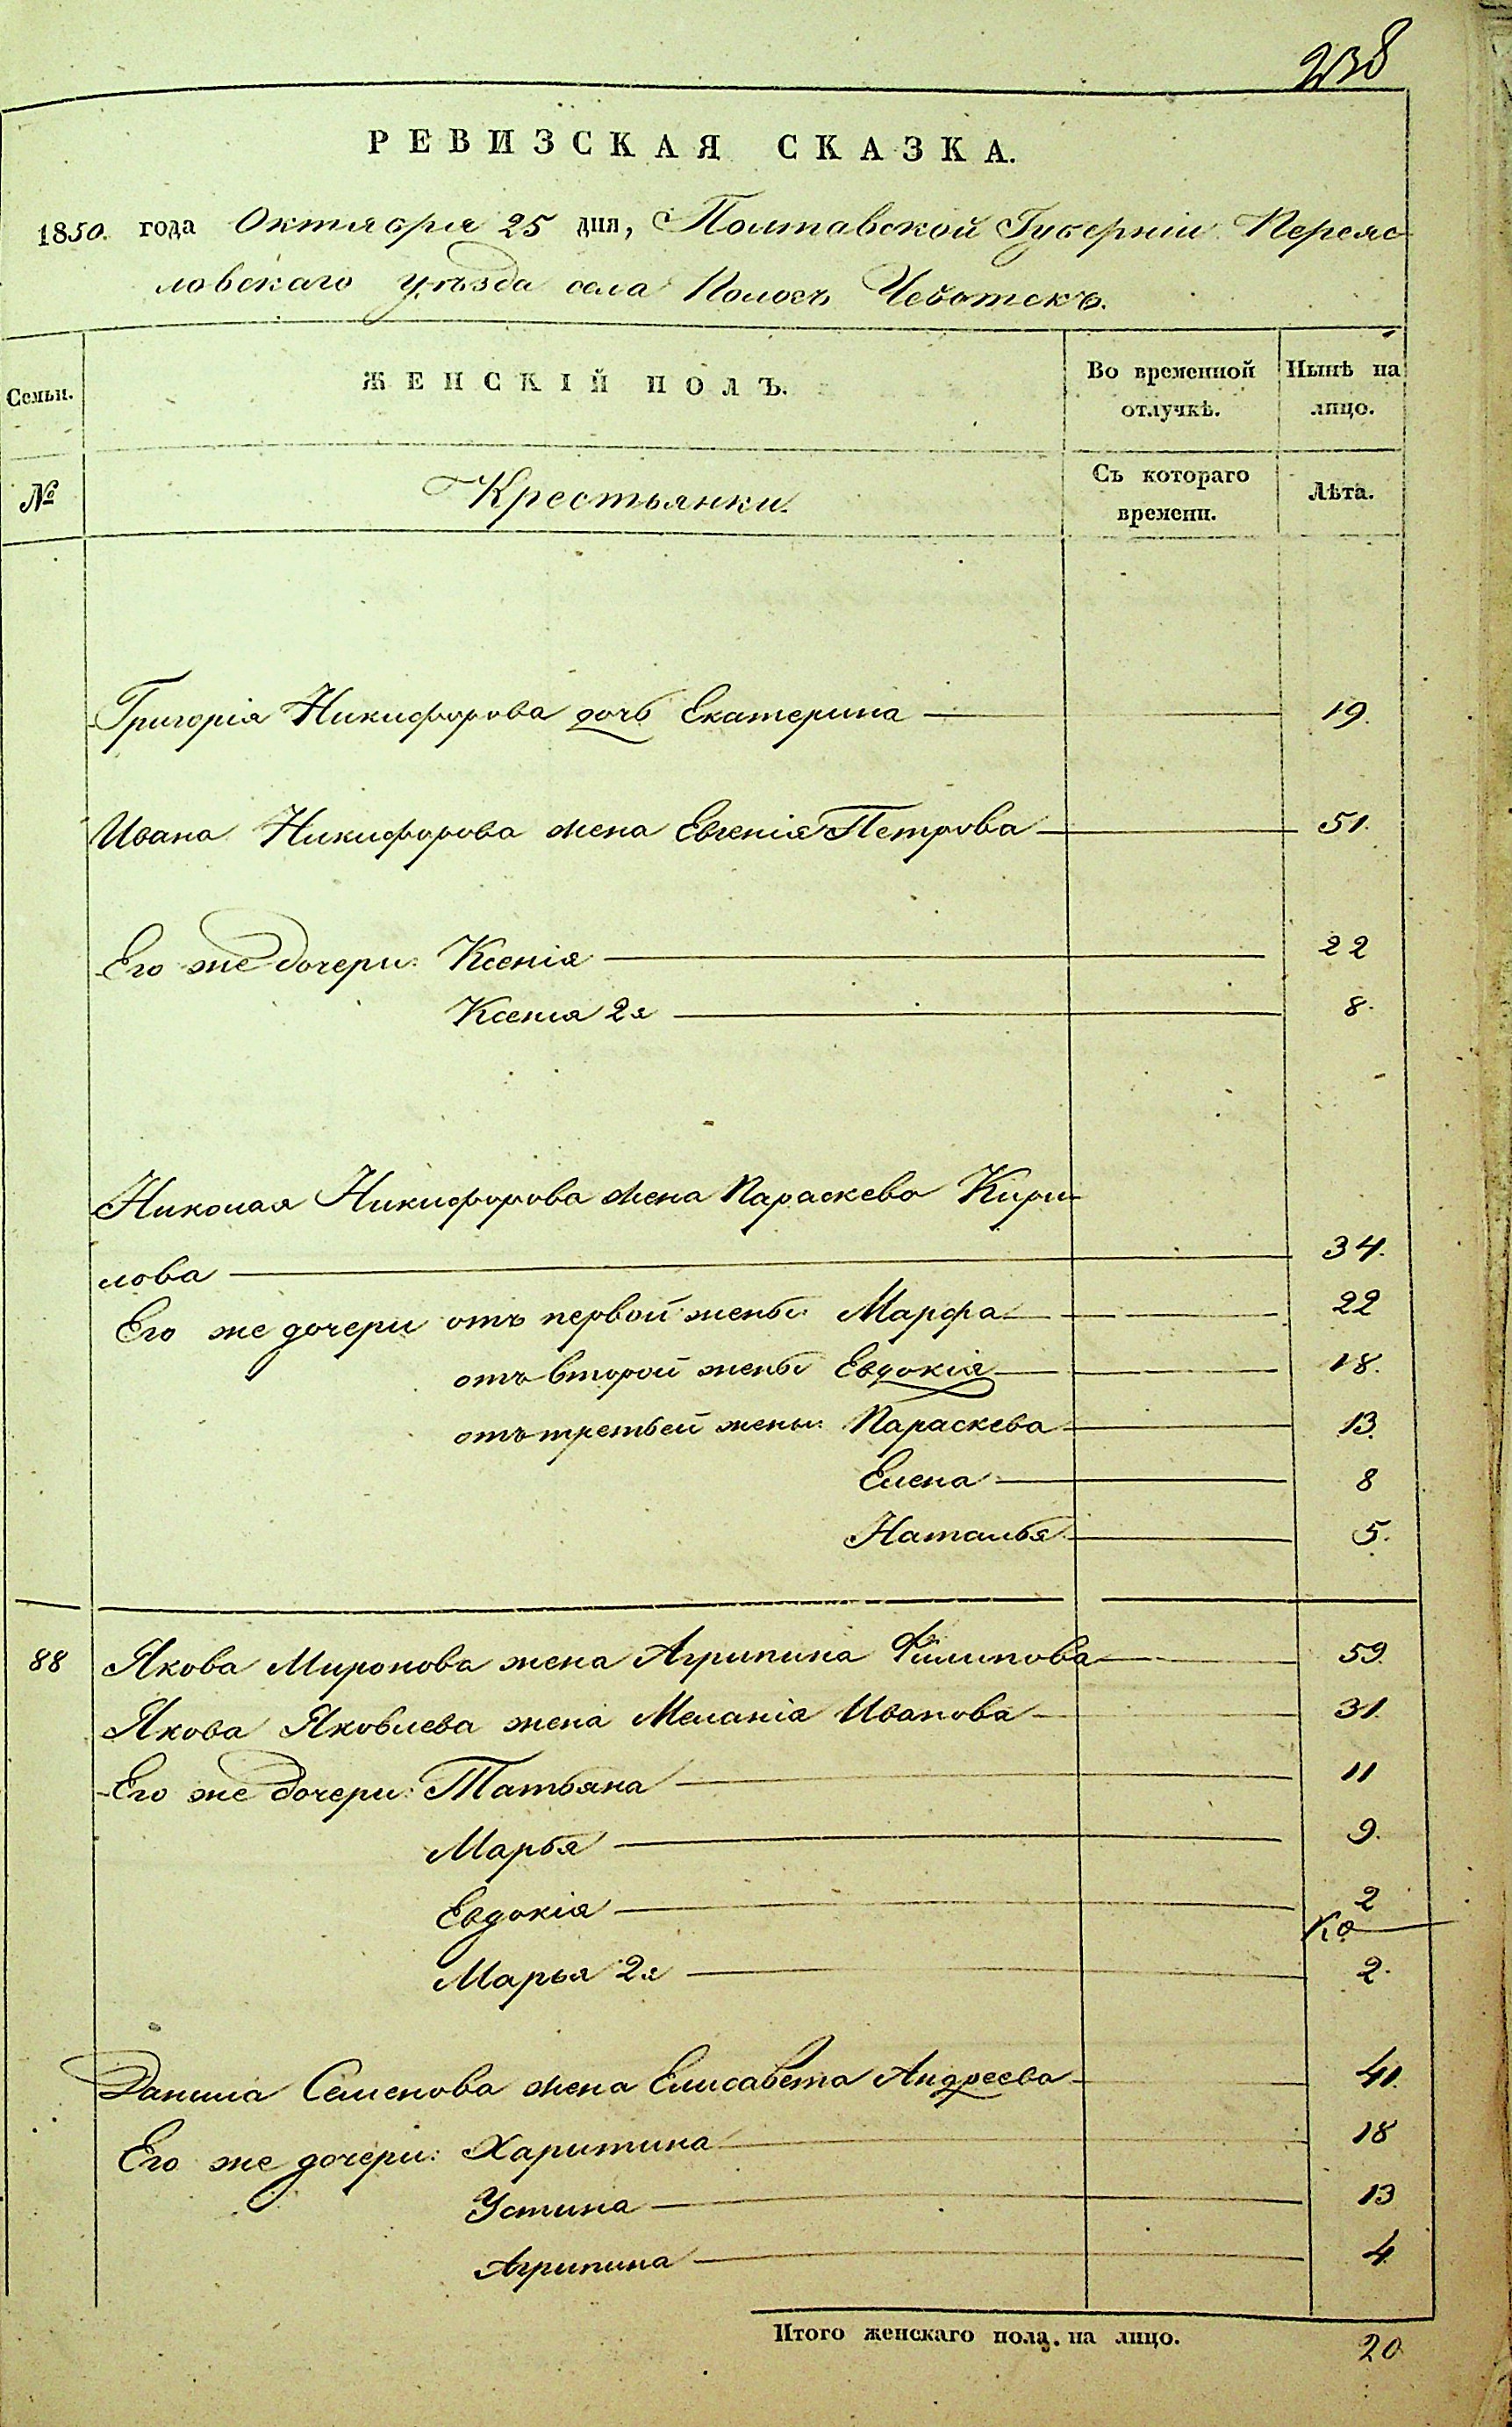 238
РЕВИЗСКАЯ СКАЗКА.
1850. года Октября 25 дня, Полтавской Губерніи Переяс
ловскаго уѣзда села
Семьи.
ЖЕНСКІЙ ПОЛЪ.
Во временной отлучкѣ.
Нынѣ на лицо.
№
Крестьянки.
Съ котораго времени.
Лѣта.
Григорія Никифорова дочь Екатерина 19.
Ивана Никифорова жена Евгенія Петрова 51.
Его же дочери: Ксенія 22
Ксенія 2я 8.
Николая Никифорова жена Параскева Кири-
лова 34.
Его же дочери отъ первой жены Марфа 22
отъ второй жены Евдокія 18.
отъ третьей жены: Параскева 13.
Елена 8
Наталья 5.
88 Якова Миронова жена Агрипина Филипова 59.
Якова Яковлева жена Меланія Иванова 31.
Его же дочери: Татьяна 11
Марья 9.
Евдокія 2
Марья 2я 2.
Данила Семенова жена Елисавета Андреева 41.
Его же дочери: Харитина 18
Устина 13
Агрипина 4
Итого женскаго пола. на лицо. 20